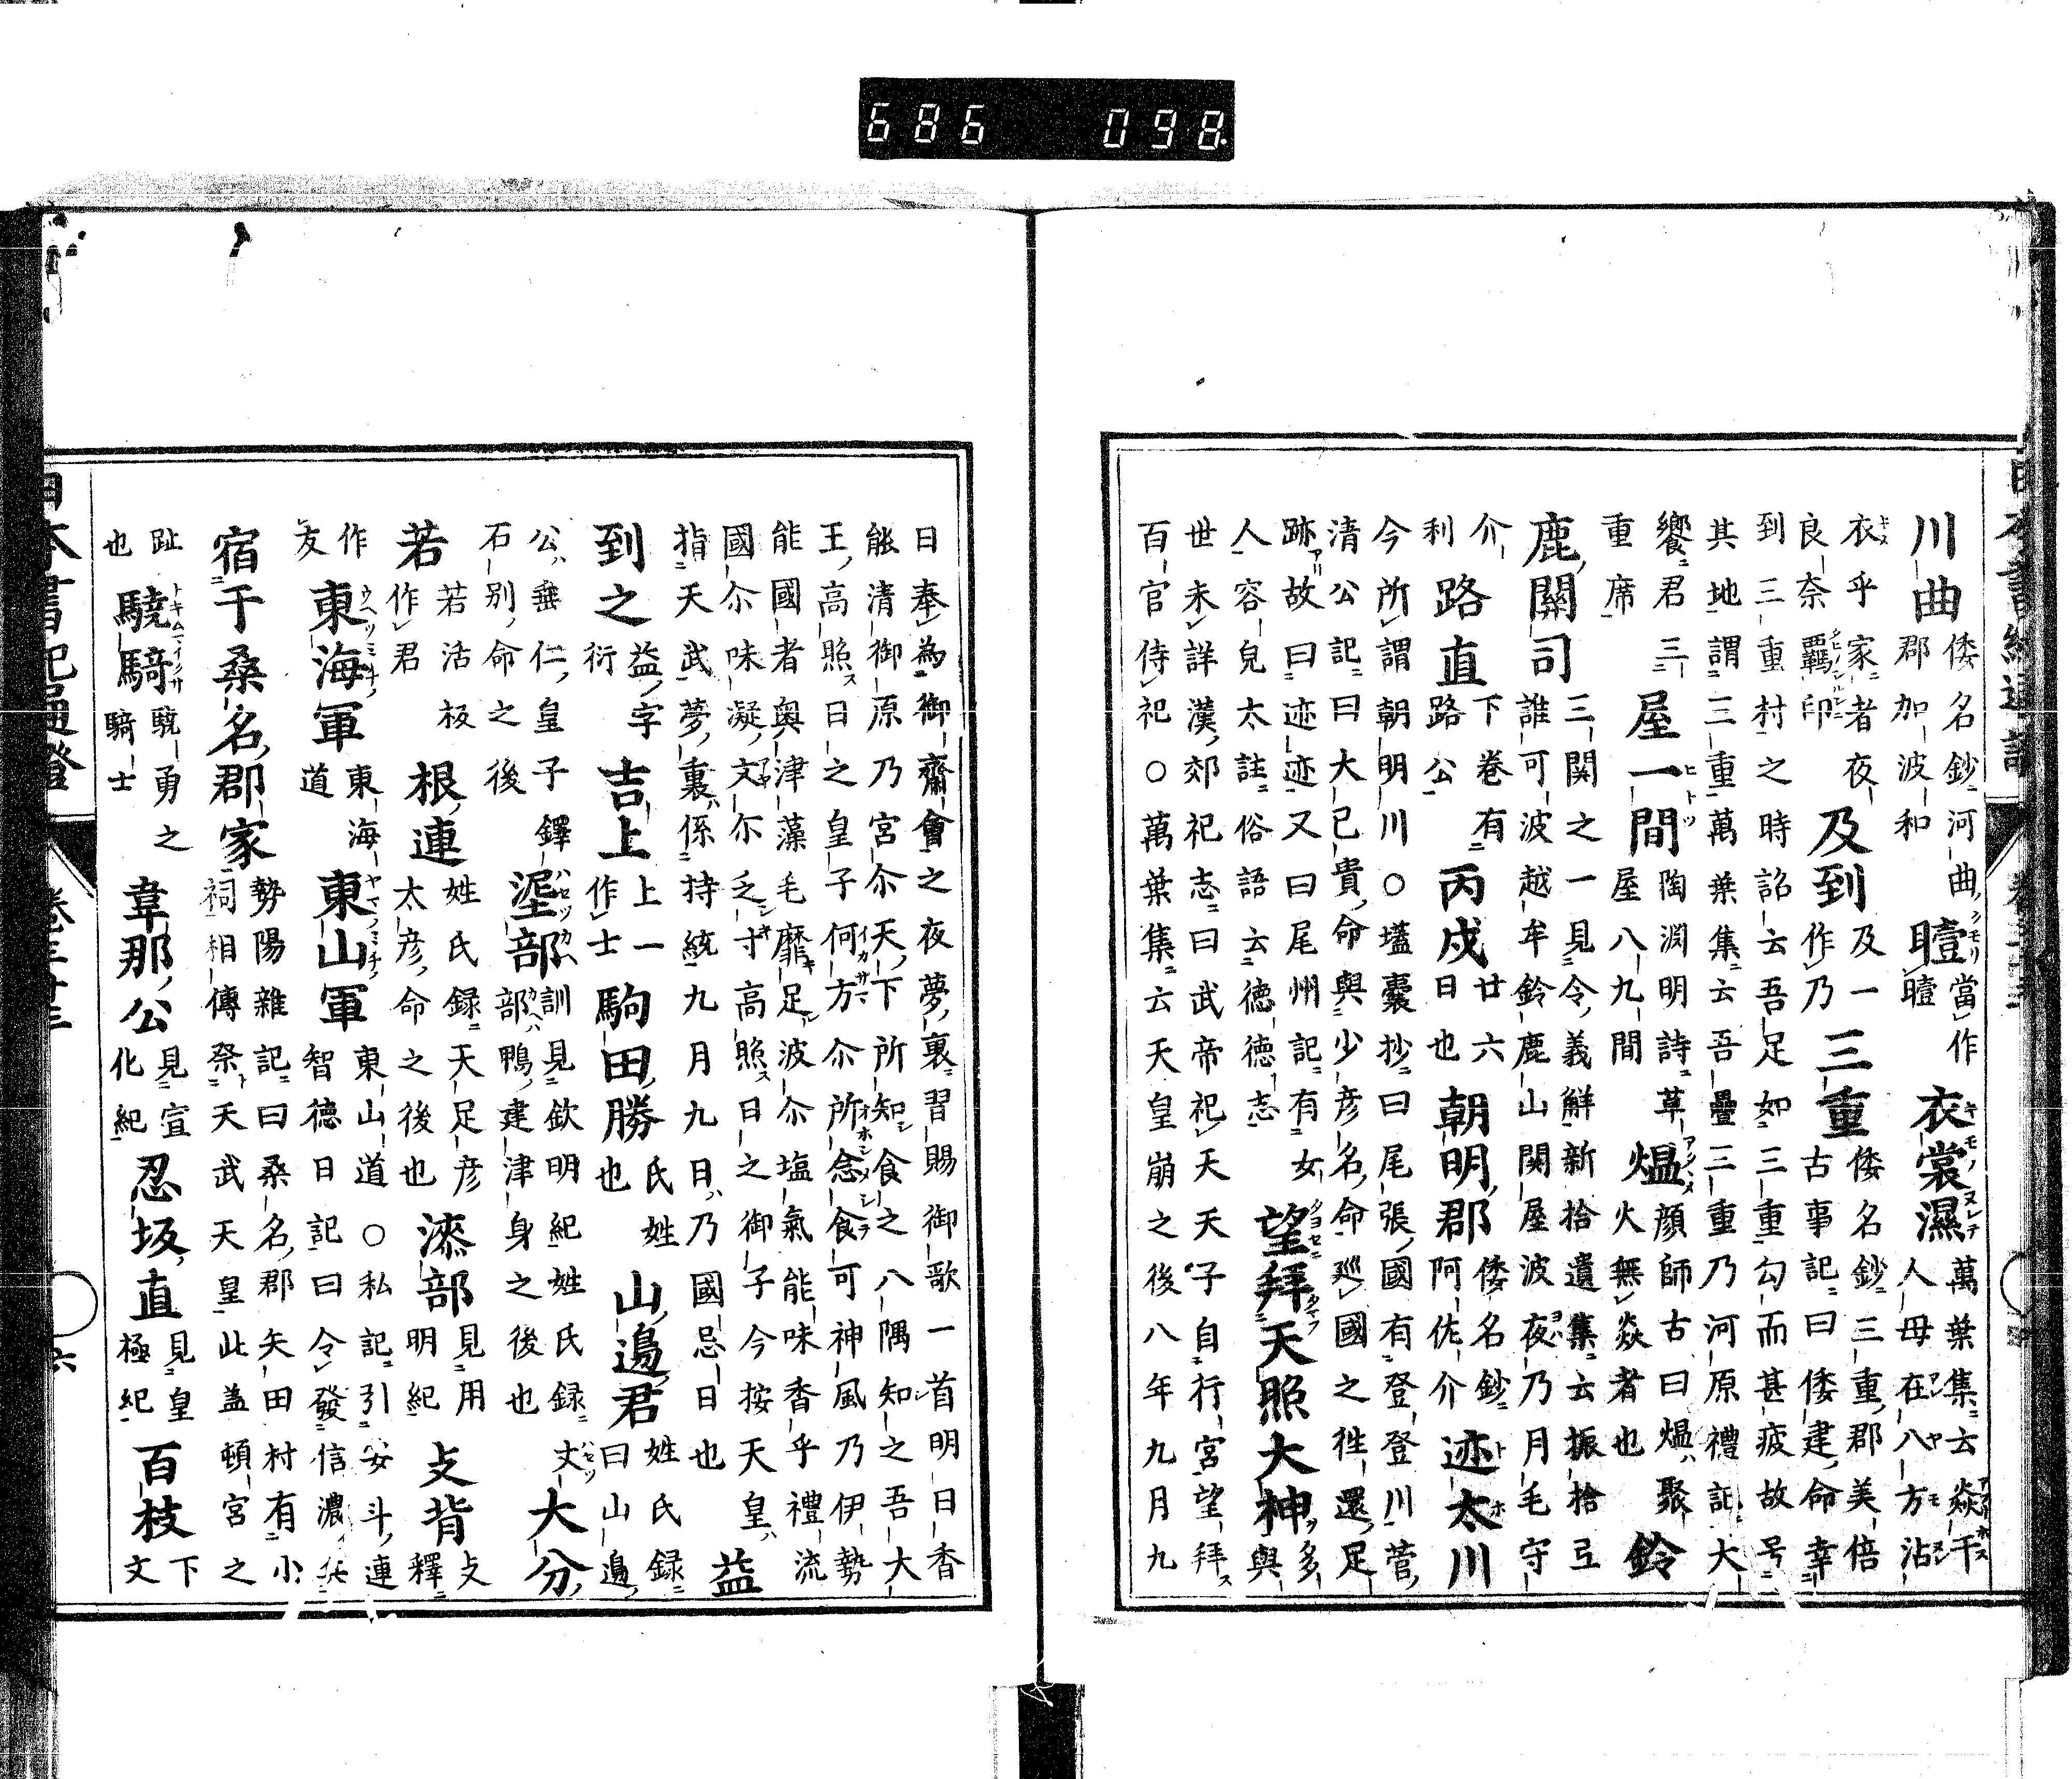 川曲 倭名鈔河曲 郡加波和 曀 當作 曀 衣裳濕 萬葉集云焱干 人母在八方沾
衣乎家者夜 良奈羈印 及到 及一 作乃 三重 倭名鈔三重郡美倍 古事記曰倭建命幸
到三重村之時詔云吾足如三重勾而甚疲故号
其地謂三重萬葉集云吾疊三重乃河原禮記大
饗君三 重席 屋一間 陶淵明詩草 屋八九間 熅 顔師古曰熅聚 火無焱者也 鈴
鹿關司 三関之一見令義解新拾遺集云振捨弖 誰可波越牟鈴鹿山関屋波夜乃月毛守
介 利 路直 下卷有 路公 丙戌 廿六 日也 朝明郡 倭名鈔 阿佐介 迹太川
今所謂朝明川○壒嚢抄曰尾張國有登登川菅
清公記曰大已貴命與少彦名命廵國之徃還足
跡故曰迹迹又曰尾州記有女 人容皃太註俗語云德德志 望拜天照大神 多 與
世未詳漢郊祀志曰武帝祀天天子自行宮望拜
百官侍祀○萬葉集云天皇崩之後八年九月九
日奉為御齋會之夜夢裏習賜御歌一首明日香
能清御原乃宮尒天下所知食之八隅知之吾大
王高照日之皇子何方尒所念食可神風乃伊勢
能國者奥津藻毛靡足波尒塩氣能味香乎禮流
國尒味凝文尒乏寸高照日之御子今按天皇 指天武夢裏係持統九月九日乃國忌日也 益
到之 益字 衍 吉上 上一 作士 駒田勝 氏姓 也 山邊君 姓氏録 曰山邊
公垂仁皇子鐸 石別命之後 埿部 訓見欽明紀姓氏録 部鴨建津身之後也 丈 大分
若 若活板 作君 根連 姓氏録天足彦 太彦命之後也 漆部 見用 明紀 攴背 攴 釋
作 友 東海軍 東海 道 東山軍 東山道○私記引安斗連 智德日記曰令發信濃兵
宿于桑名郡家 勢陽雜記曰桑名郡矢田村有小 祠相傳祭天武天皇此盖頓宮之
趾 也 驍騎 驍勇之 騎士 韋那公 見宣 化紀 忍坂直 見皇 極紀 百枝 下 文
日本書紀通證 卷三十三 六
686 098